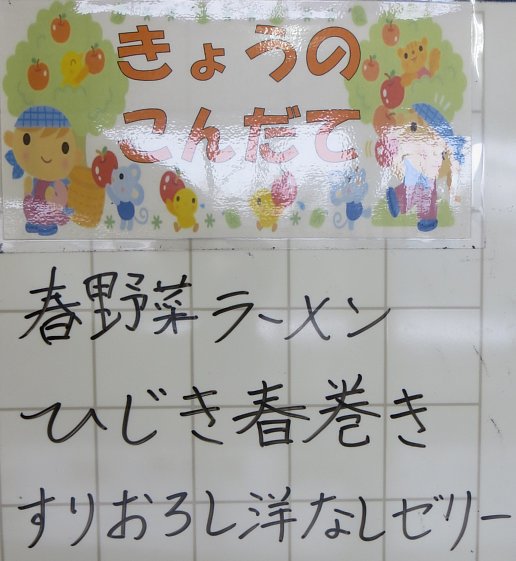 きょうの
こんだて
春野菜ラーメン
ひじき春巻き
すりおろし洋なしゼリー